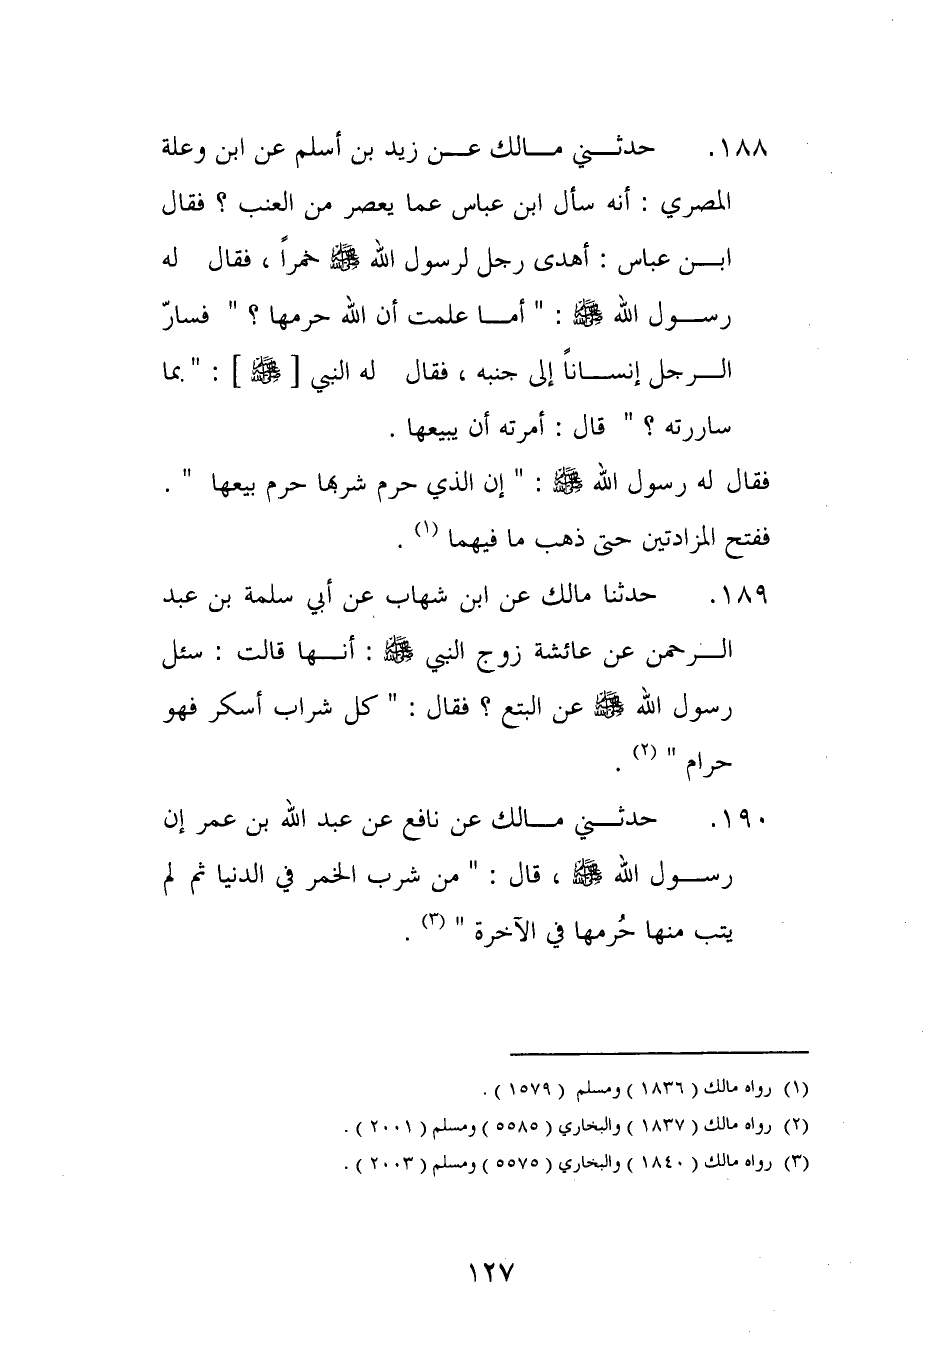 ١٨٨. حدثني مالك عن زيد بن أسلم عن ابن وعلة
المصري : أنه سأل ابن عباس عما يعصر من العنب ؟ فقال
ابن عباس : أهدى رجل لرسول الله ﷺ خمراً ، فقال له
رسول الله ﷺ : " أما علمت أن الله حرمها ؟ " فسارّ
الرجل إنساناً إلى جنبه ، فقال له النبي [ ﷺ ] : " بما
ساررته ؟ " قال : أمرته أن يبيعها .
فقال له رسول الله ﷺ : " إن الذي حرم شربها حرم بيعها " .
ففتح المزادتين حتى ذهب ما فيهما (١) .
١٨٩. حدثنا مالك عن ابن شهاب عن أبي سلمة بن عبد
الرحمن عن عائشة زوج النبي ﷺ : أنها قالت : سئل
رسول الله ﷺ عن البتع ؟ فقال : " كل شراب أسكر فهو
حرام " (٢) .
١٩٠. حدثني مالك عن نافع عن عبد الله بن عمر إن
رسول الله ﷺ ، قال : " من شرب الخمر في الدنيا ثم لم
يتب منها حُرمها في الآخرة " (٣) .
(١) رواه مالك ( ١٨٣٦ ) ومسلم ( ١٥٧٩ ) .
(٢) رواه مالك ( ١٨٣٧ ) والبخاري ( ٥٥٨٥ ) ومسلم ( ٢٠٠١ ) .
(٣) رواه مالك ( ١٨٤٠ ) والبخاري ( ٥٥٧٥ ) ومسلم ( ٢٠٠٣ ) .
١٢٧